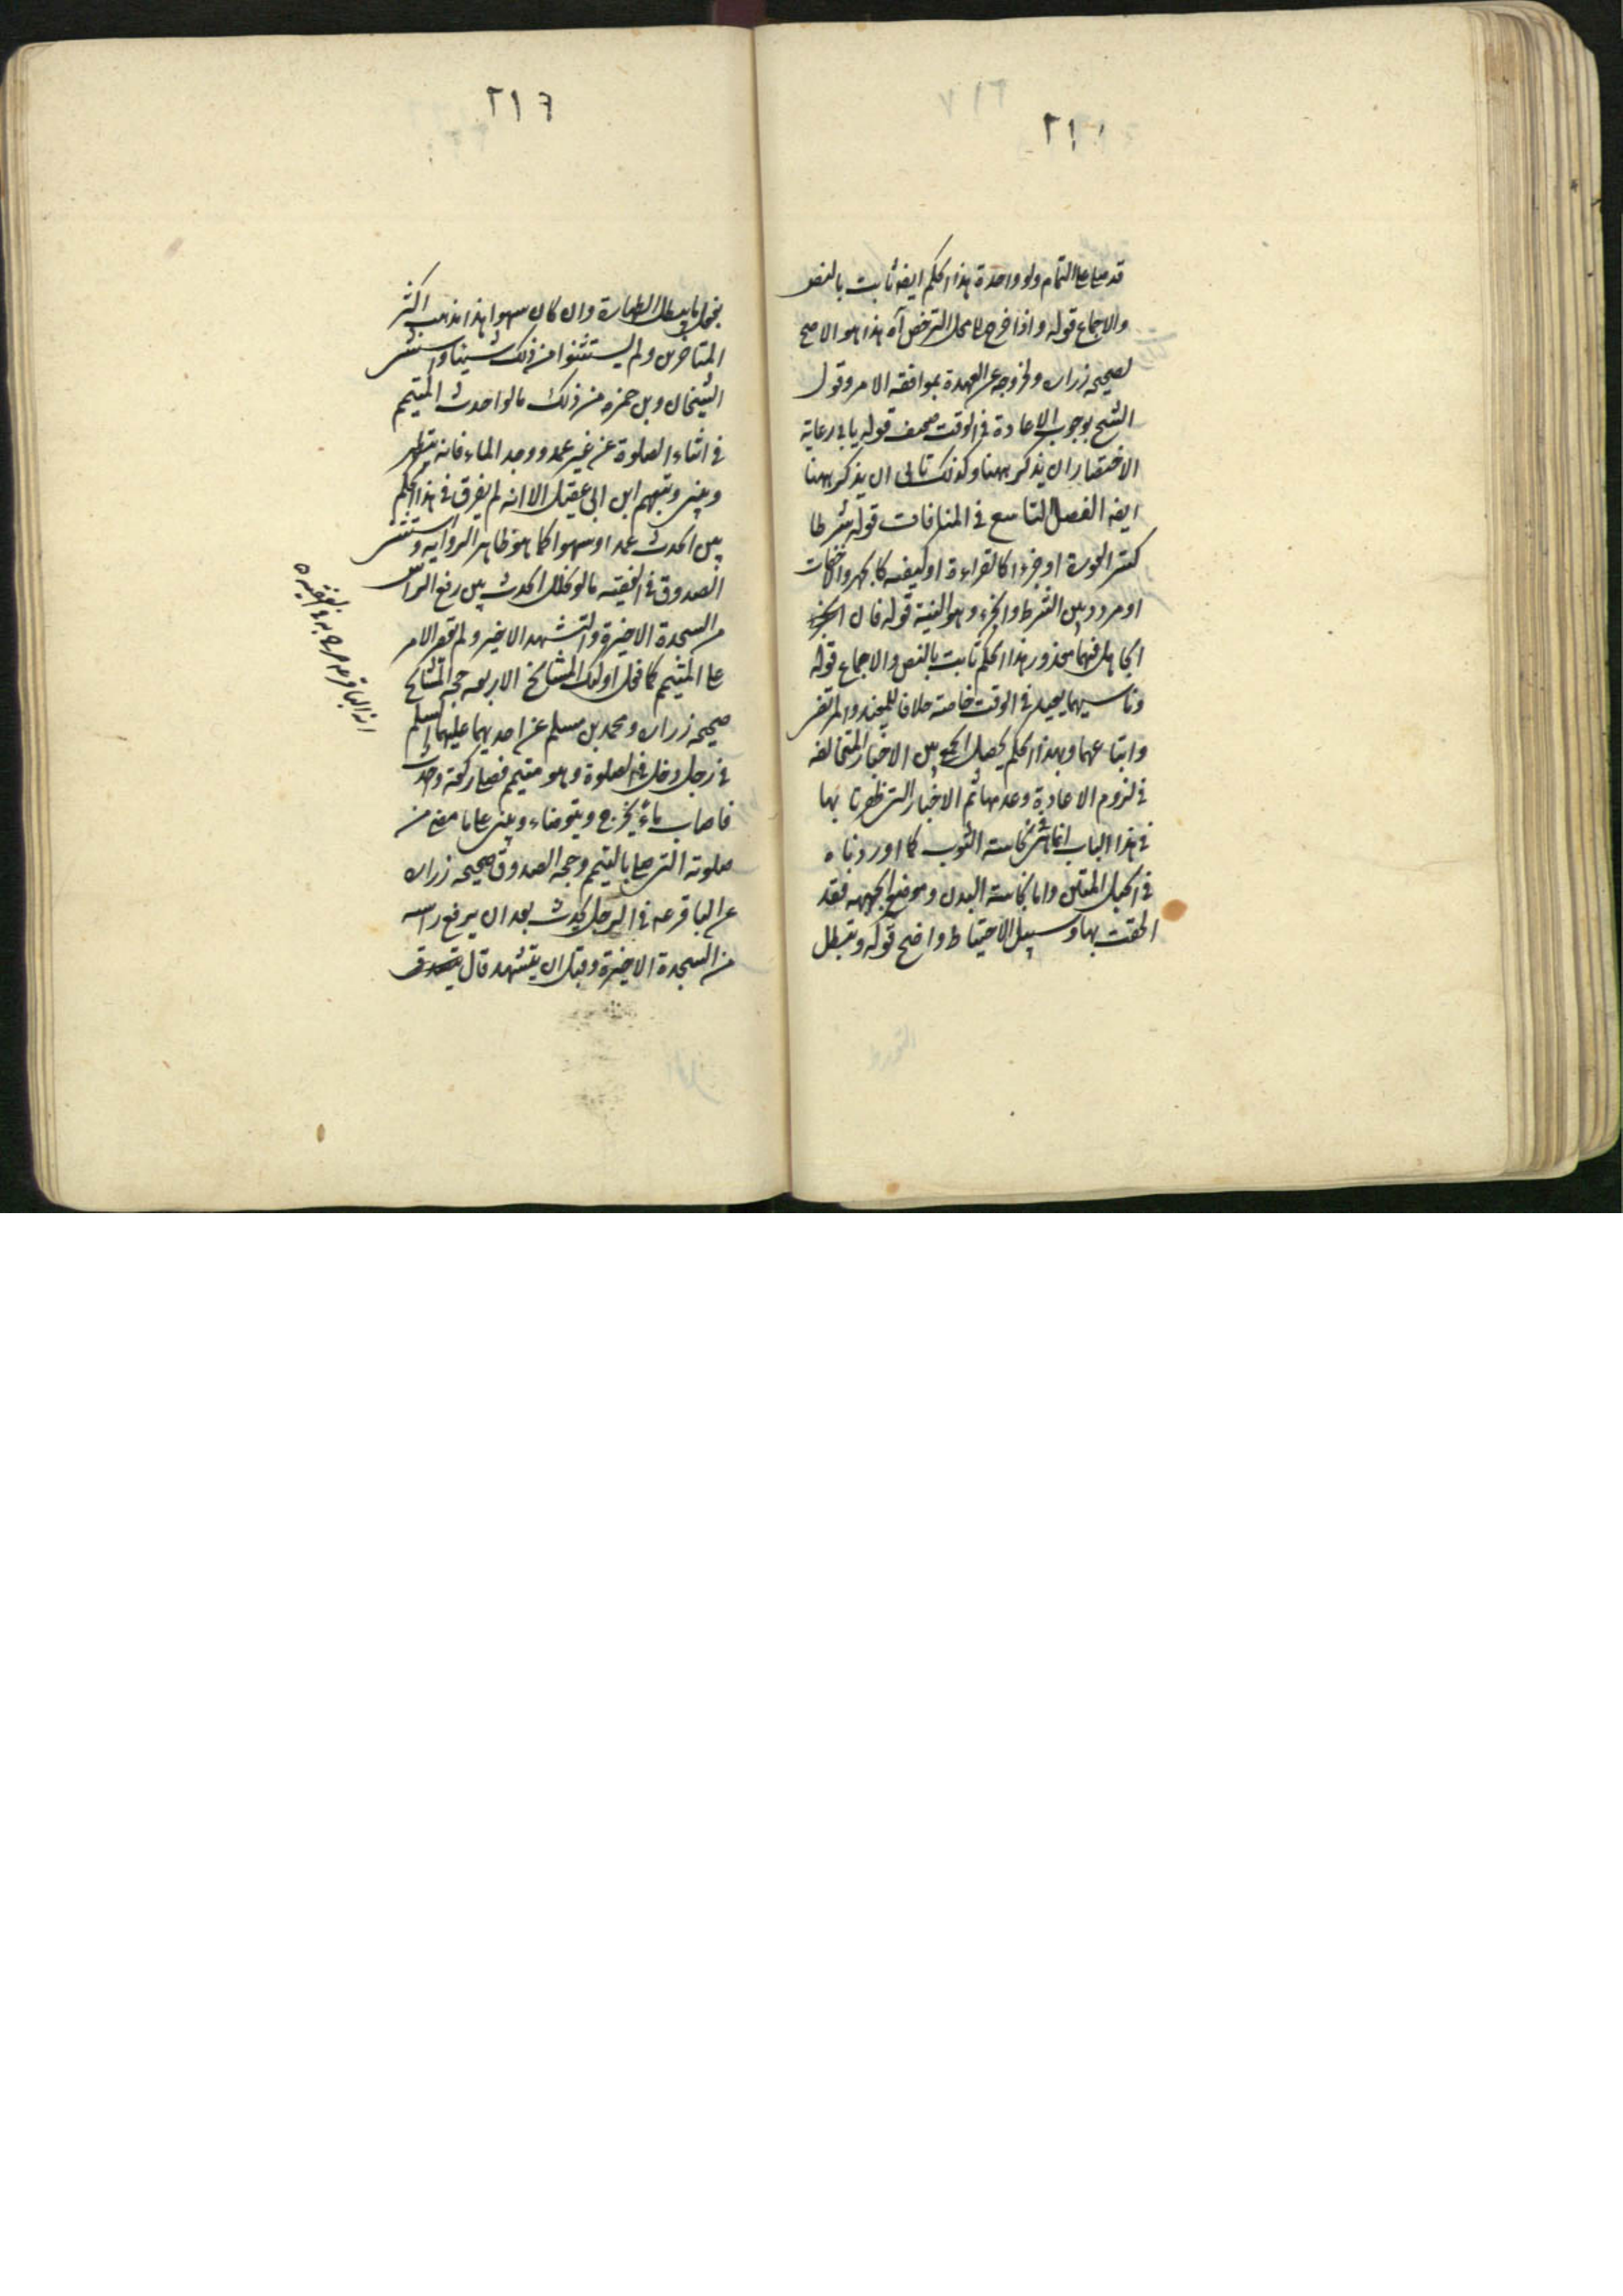 ٢١١
قد صلى على التمام ولو واحدة هذا الحكم ايضه ثابت بالنص
والاجماع قوله واذا خرج الى محل الترخص آه هذا هو الاصح
لصحيحه زراره ولخروجه عن العهدة بموافقه الامر وقول
الشيخ بوجوب الاعادة في الوقت ضعيف قوله يابى رعاية
الاختصار ان يذكر ههنا وكذلك تابى ان يذكر ههنا
ايضه الفصل التاسع في المنافات قوله شرطا
كستر العورة او جزءا كالقراءة او كيفيه كالجهر والاخفات
او مردد بين الشرط والجزء وهو النية قوله فان
الجاهل فيهما معذور هذا الحكم ثابت بالنص والاجماع قوله
وناسيهما يعيد في الوقت خاصه خلافا للمفيد والمرتضى
واتباعهما وبهذا الحكم يحصل الجمع بين الاخبار المتخالفه
في لزوم الاعادة وعدمها ثم الاخبار التي ظفرنا بها
في هذا الباب انما هي في نجاسته الثوب كما اوردناه
في الحبل المتين واما نجاسته البدن وموضع الجبهه فقد
الحقت بها وسبيل الاحتياط واضح قوله وتبطل
٢١٦
بفعل ما يبطل الطهارة وان كان سهوا هذا مذهب اكثر
المتاخرين ولم يستثنوا من ذلك شيئا واستثنى
الشيخان وبن حمزه من ذلك ما لو احدث المتيمم
في اثناء الصلوة عن غير عمد ووجد الماء فانه يتطهر
ويبنى وتبعهم ابن ابى عقيل الا انه لم يفرق في هذا الحكم
بين الحدث عمدا وسهوا كما هو ظاهر الروايه واستثنى
الصدوق في الفقيه ما لو تخلل الحدث بين رفع الراس
من السجدة الاخيرة والتشهد الاخير ولم يقصر الامر
على المتيمم كما فعل اولئك المشائخ الاربعه حجه المشائخ
صحيحه زراره ومحمد بن مسلم عن احديهما عليهما السلم
في رجل دخل في الصلوة وهو متيمم فصلى ركعة واحدث
فاصاب ماءً يخرج ويتوضاء ويبنى على ما مضى من
صلوته التي صلى بالتيمم وحجه الصدوق صحيحه زراره
عن الباقر عه في الرجل يحدث بعد ان يرفع راسه
من السجدة الاخيرة وقبل ان يتشهد قال